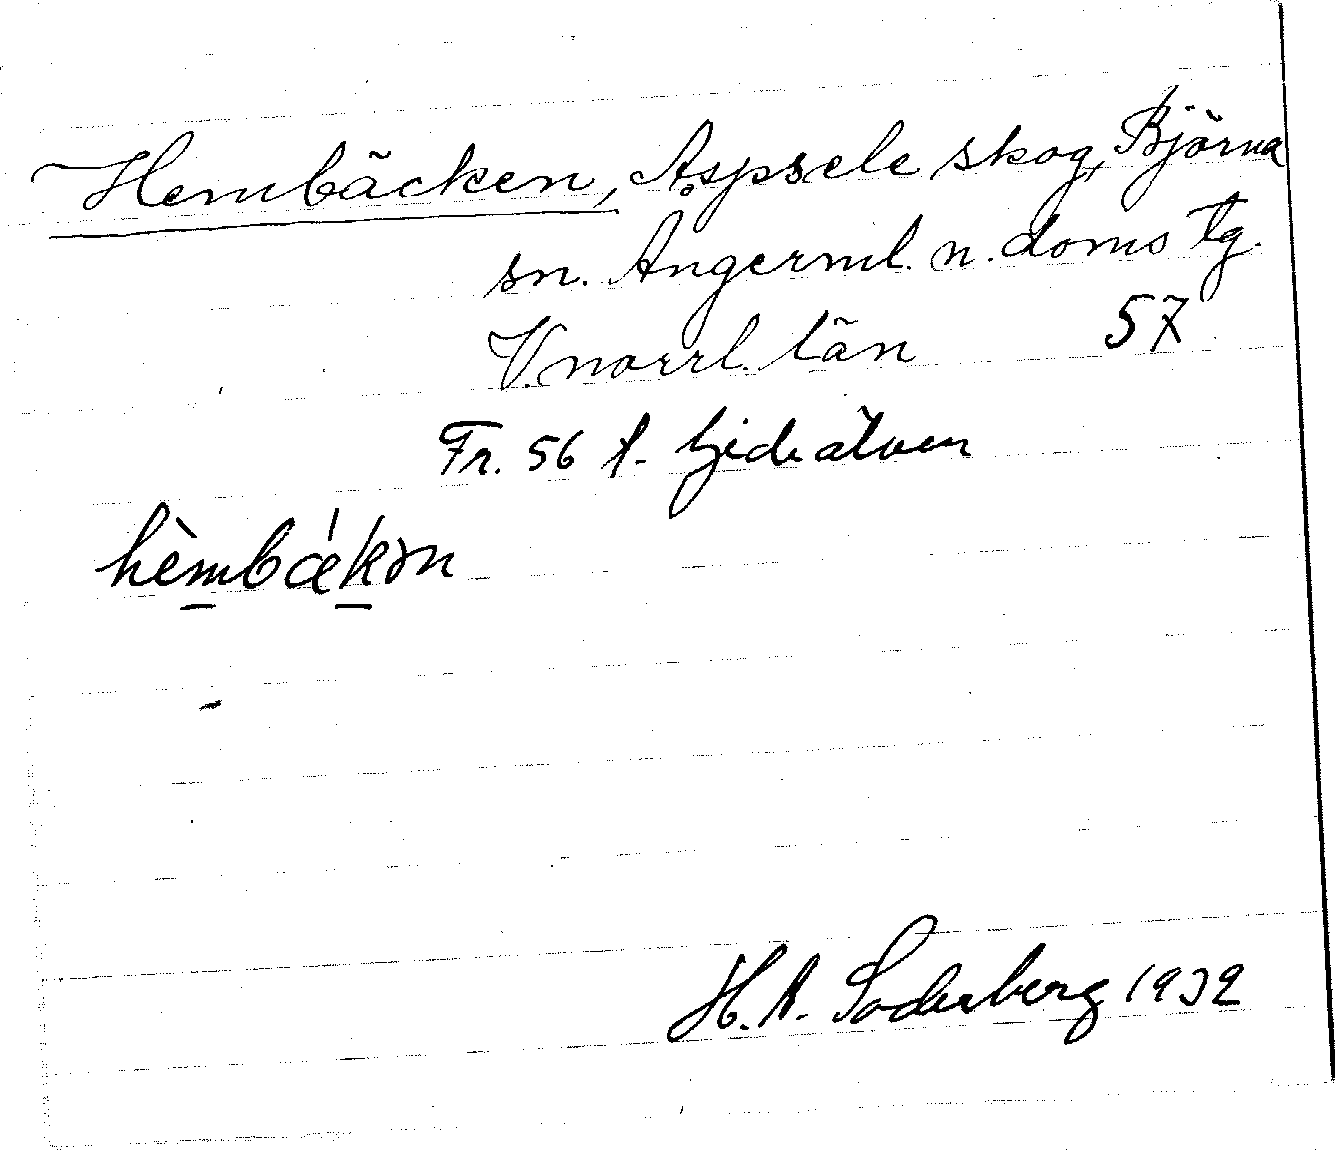 Hembäcken, Aspsele skog, Björna
sn. Ångerml. n. doms tg.
V.norrl. län 57
Fr. 56 t. Gideälven
hèmbǽkən
H. A. Söderberg 1932